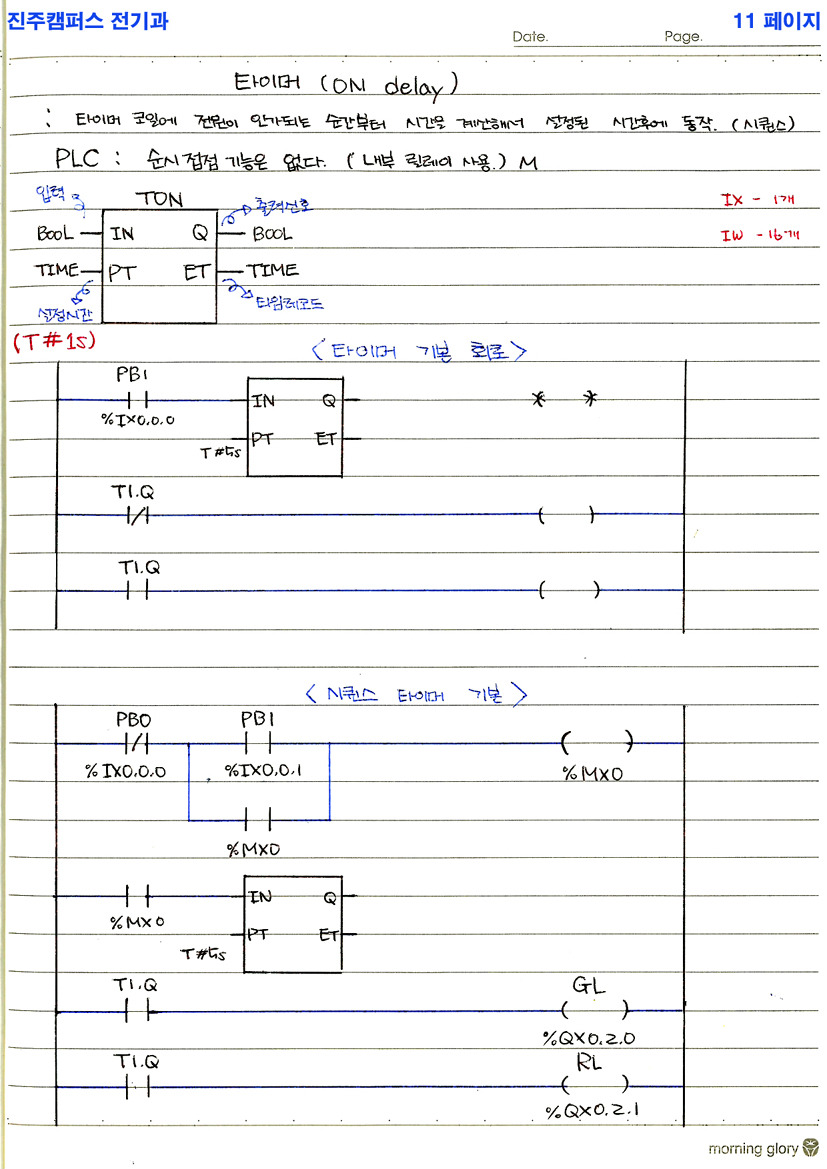 진주캠퍼스 전기과 11 페이지
Date. Page.
타이머 (ON delay)
: 타이머 코일에 전원이 인가되는 순간부터 시간을 계산해서 설정된 시간후에 동작. (시퀀스)
PLC : 순시접점 기능은 없다. (내부 릴레이 사용.) M
입력 TON 출력신호 IX - 1개
BOOL IN Q BOOL IW - 16개
TIME PT ET TIME
설정시간 타임레코드
(T#1S)
<타이머 기본 회로>
PB1
IN Q * *
%IX0.0.0
T#5s PT ET
T1.Q
( )
T1.Q
( )
<시퀀스 타이머 기본>
PB0 PB1
( )
%IX0.0.0 %IX0.0.1 %MX0
%MX0
IN Q
%MX0
T#5s PT ET
T1.Q GL
( )
%QX0.2.0
T1.Q RL
( )
%QX0.2.1
morning glory